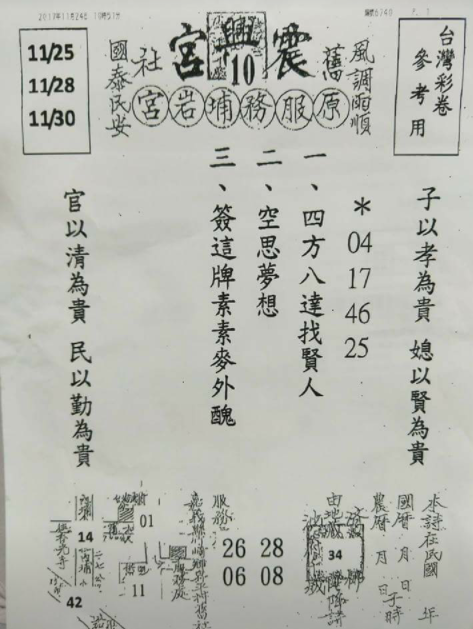 2017年11月24日 10時51分
台灣彩卷
參考用
風調雨順
舊 震興宮 社
10
原服務埔岩宮
國泰民安
11/25
11/28
11/30
子以孝為貴 媳以賢為貴
* 04 17 46 25
一、四方八達找賢人
二、空思夢想
三、簽這牌素素麥外醜
官以清為貴 民以勤為貴
本詩在民國 年
國曆 月 日
農曆 月 日 子時
34
28 08
26 06
服務
01
11
14
42